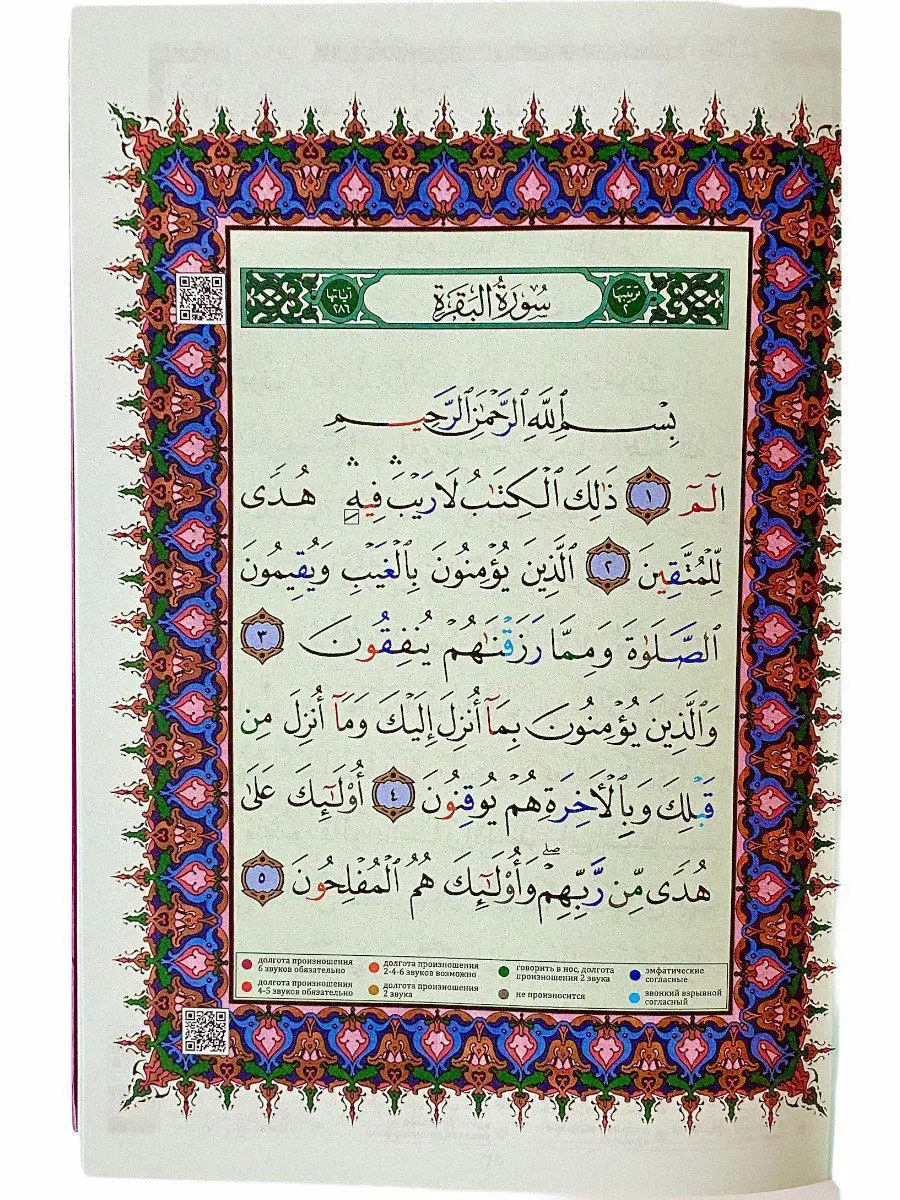 ترتيبها ٢ سُورَةُ الْبَقَرَةِ آيَاتُهَا ٢٨٦
بِسْمِ ٱللَّهِ ٱلرَّحْمَٰنِ ٱلرَّحِيمِ
الٓمٓ ١ ذَٰلِكَ ٱلْكِتَٰبُ لَا رَيْبَۛ فِيهِۛ هُدًى
لِّلْمُتَّقِينَ ٢ ٱلَّذِينَ يُؤْمِنُونَ بِٱلْغَيْبِ وَيُقِيمُونَ
ٱلصَّلَوٰةَ وَمِمَّا رَزَقْنَٰهُمْ يُنفِقُونَ ٣
وَٱلَّذِينَ يُؤْمِنُونَ بِمَآ أُنزِلَ إِلَيْكَ وَمَآ أُنزِلَ مِن
قَبْلِكَ وَبِٱلْأَخِرَةِ هُمْ يُوقِنُونَ ٤ أُو۟لَٰٓئِكَ عَلَىٰ
هُدًى مِّن رَّبِّهِمْۖ وَأُو۟لَٰٓئِكَ هُمُ ٱلْمُفْلِحُونَ ٥
долгота произношения 6 звуков обязательно
долгота произношения 2-4-6 звуков возможно
говорить в нос, долгота произношения 2 звука
эмфатические согласные
долгота произношения 4-5 звуков обязательно
долгота произношения 2 звука
не произносится
звонкий взрывной согласный